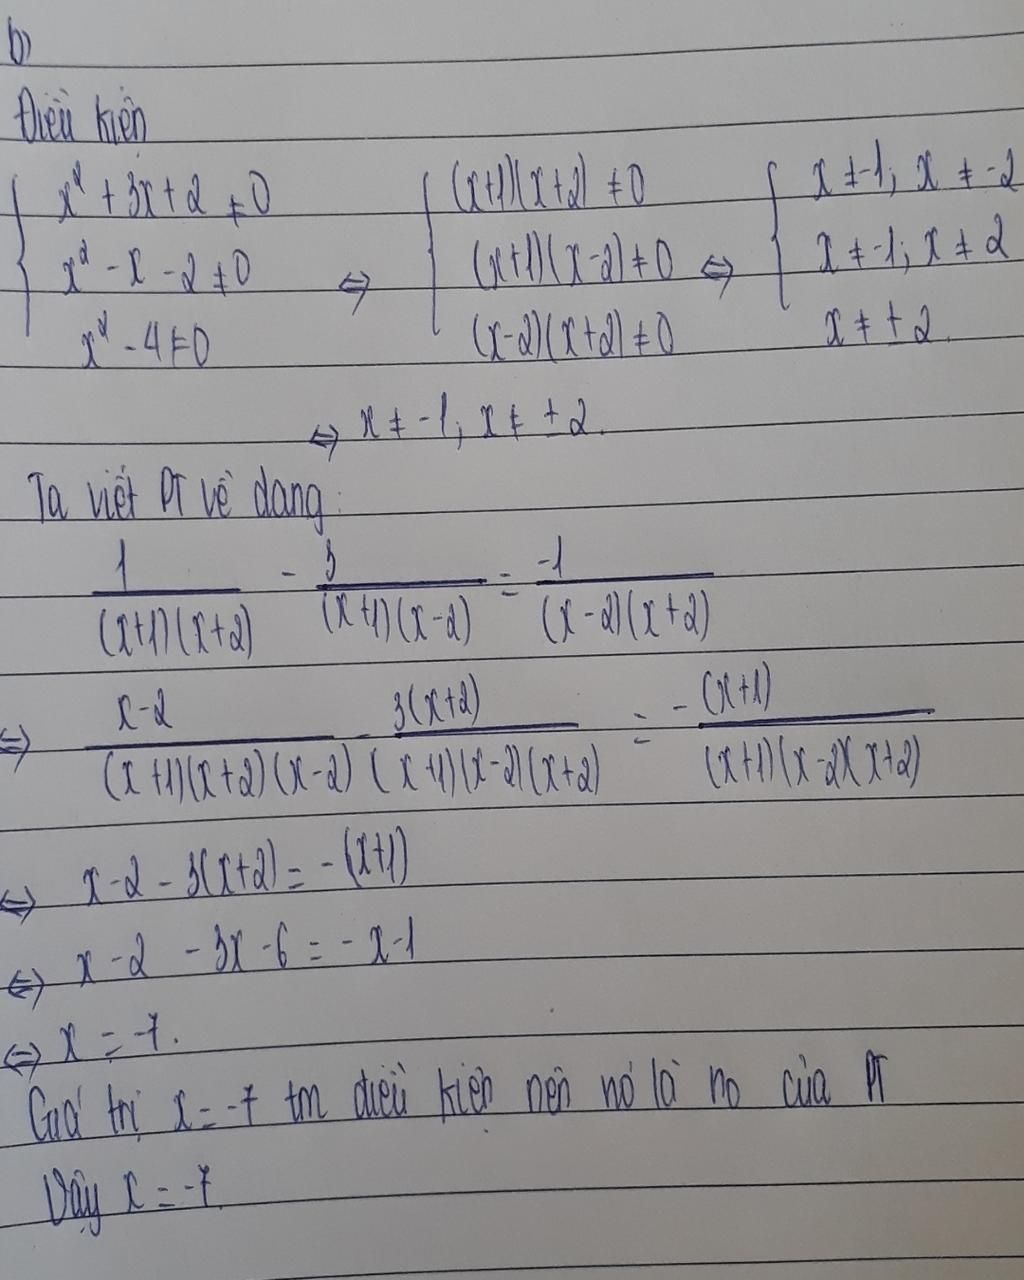 b)
Điều kiện
{ x² + 3x + 2 ≠ 0 { (x+1)(x+2) ≠ 0 { x ≠ -1; x ≠ -2
x² - x - 2 ≠ 0 ⇔ (x+1)(x-2) ≠ 0 ⇔ x ≠ -1; x ≠ 2
x² - 4 ≠ 0 (x-2)(x+2) ≠ 0 x ≠ ±2.
⇔ x ≠ -1; x ≠ ±2.
Ta viết PT về dạng:
1/((x+1)(x+2)) - 3/((x+1)(x-2)) = -1/((x-2)(x+2))
⇔ (x-2)/((x+1)(x+2)(x-2)) - 3(x+2)/((x+1)(x-2)(x+2)) = -(x+1)/((x+1)(x-2)(x+2))
⇔ x-2 - 3(x+2) = -(x+1)
⇔ x-2 - 3x - 6 = -x-1
⇔ x = -7.
Giá trị x = -7 tm điều kiện nên nó là no của PT
Vậy x = -7.